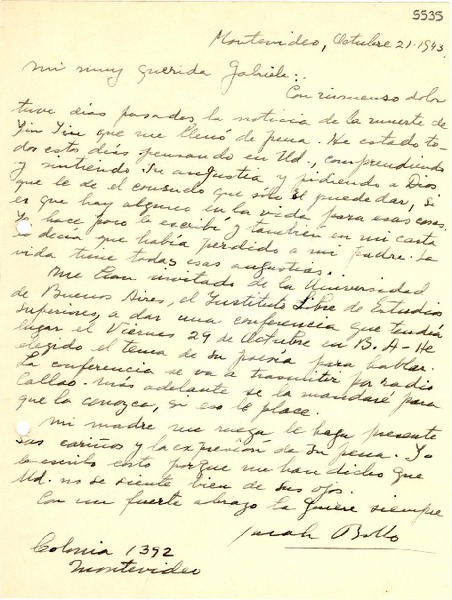 5535
Montevideo, Octubre 21-1943.
Mi muy querida Gabriela:
Con inmenso dolor
tuve días pasados la noticia de la muerte de
Yin Yin que me llenó de pena. He estado to-
dos estos días pensando en Ud., comprendiendo
y sintiendo su angustia y pidiendo a Dios
que le dé el consuelo que sólo él puede dar, si
es que hay alguno en la vida para esas cosas.
Yo hace poco le escribí y también en mi carta
le decía que había perdido a mi padre. La
vida tiene todas esas angustias.
Me han invitado de la Universidad
de Buenos Aires, el Instituto Libre de Estudios
Superiores, a dar una conferencia que tendrá
lugar el Viernes 29 de Octubre en B. A- He
elegido el tema de su poesía para hablar.
La conferencia se va a transmitir por radio
Callao. Más adelante se la mandaré para
que la conozca, si eso le place.
Mi madre me ruega le haga presente
sus cariños y la expresión de su pena. Yo
le escribo corto porque me han dicho que
Ud. no se siente bien de sus ojos.
Con un fuerte abrazo la quiere siempre
Sarah Bollo
Colonia 1392
Montevideo